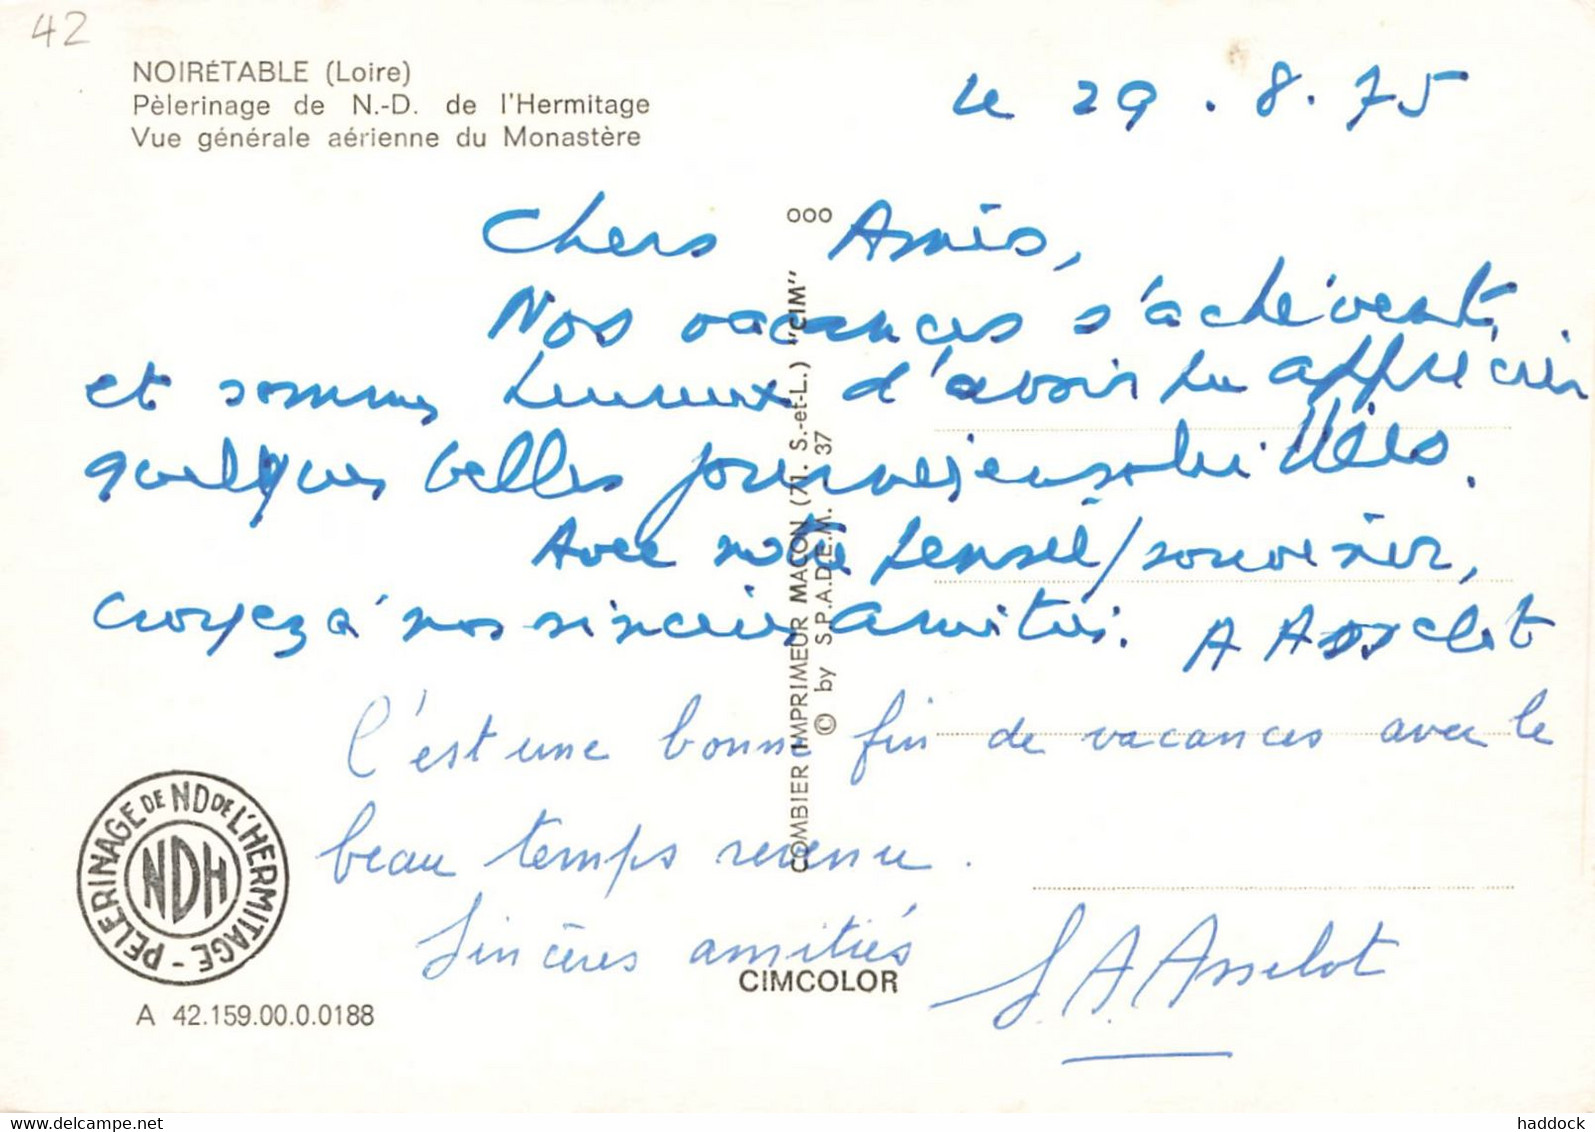 42
NOIRÉTABLE (Loire)
Pèlerinage de N.-D. de l'Hermitage
Vue générale aérienne du Monastère
Le 29.8.75
Chers Amis,
Nos vacances s'achèvent,
et sommes heureux d'avoir pu apprécier
quelques belles journées ensoleillées.
Avec notre pensée/souvenir,
croyez à nos sincères amitiés. A Asselot
C'est une bonne fin de vacances avec le
beau temps revenu.
Sincères amitiés
J. A. Asselot
COMBIER IMPRIMEUR MACON (71. S.-et-L.) "CIM"
© by S.P.A.D.E.M. 37
ooo
PÈLERINAGE DE ND DE L'HERMITAGE -
NDH
CIMCOLOR
A 42.159.00.0.0188
www.delcampe.net
haddock